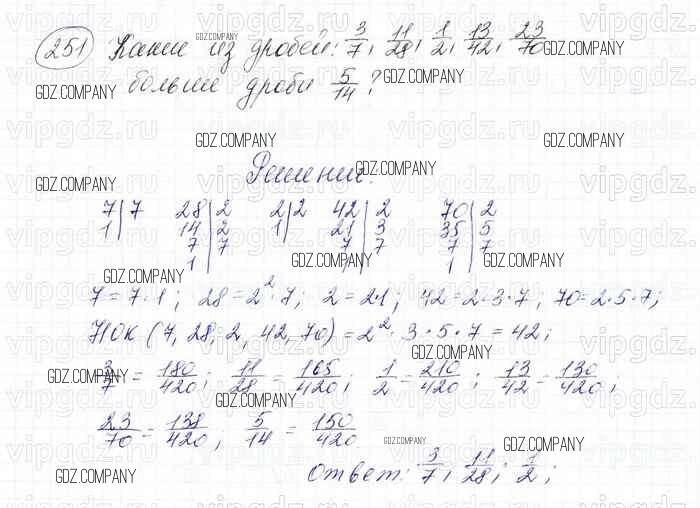 251 Какие из дробей: 3/7, 11/28, 1/2, 13/42, 23/70
больше дроби 5/14?
Решение.
7|7 28|2 2|2 42|2 70|2
1| 14|2 1| 21|3 35|5
7|7 7|7 7|7
1| 1| 1|
7 = 7 · 1; 28 = 2² · 7; 2 = 2·1; 42 = 2 · 3 · 7; 70 = 2 · 5 · 7;
НОК (7, 28, 2, 42, 70) = 2² · 3 · 5 · 7 = 42;
3/7 = 180/420; 11/28 = 165/420; 1/2 = 210/420; 13/42 = 130/420;
23/70 = 138/420; 5/14 = 150/420
Ответ: 3/7; 11/28; 1/2;
GDZ.COMPANY
vipgdz.ru